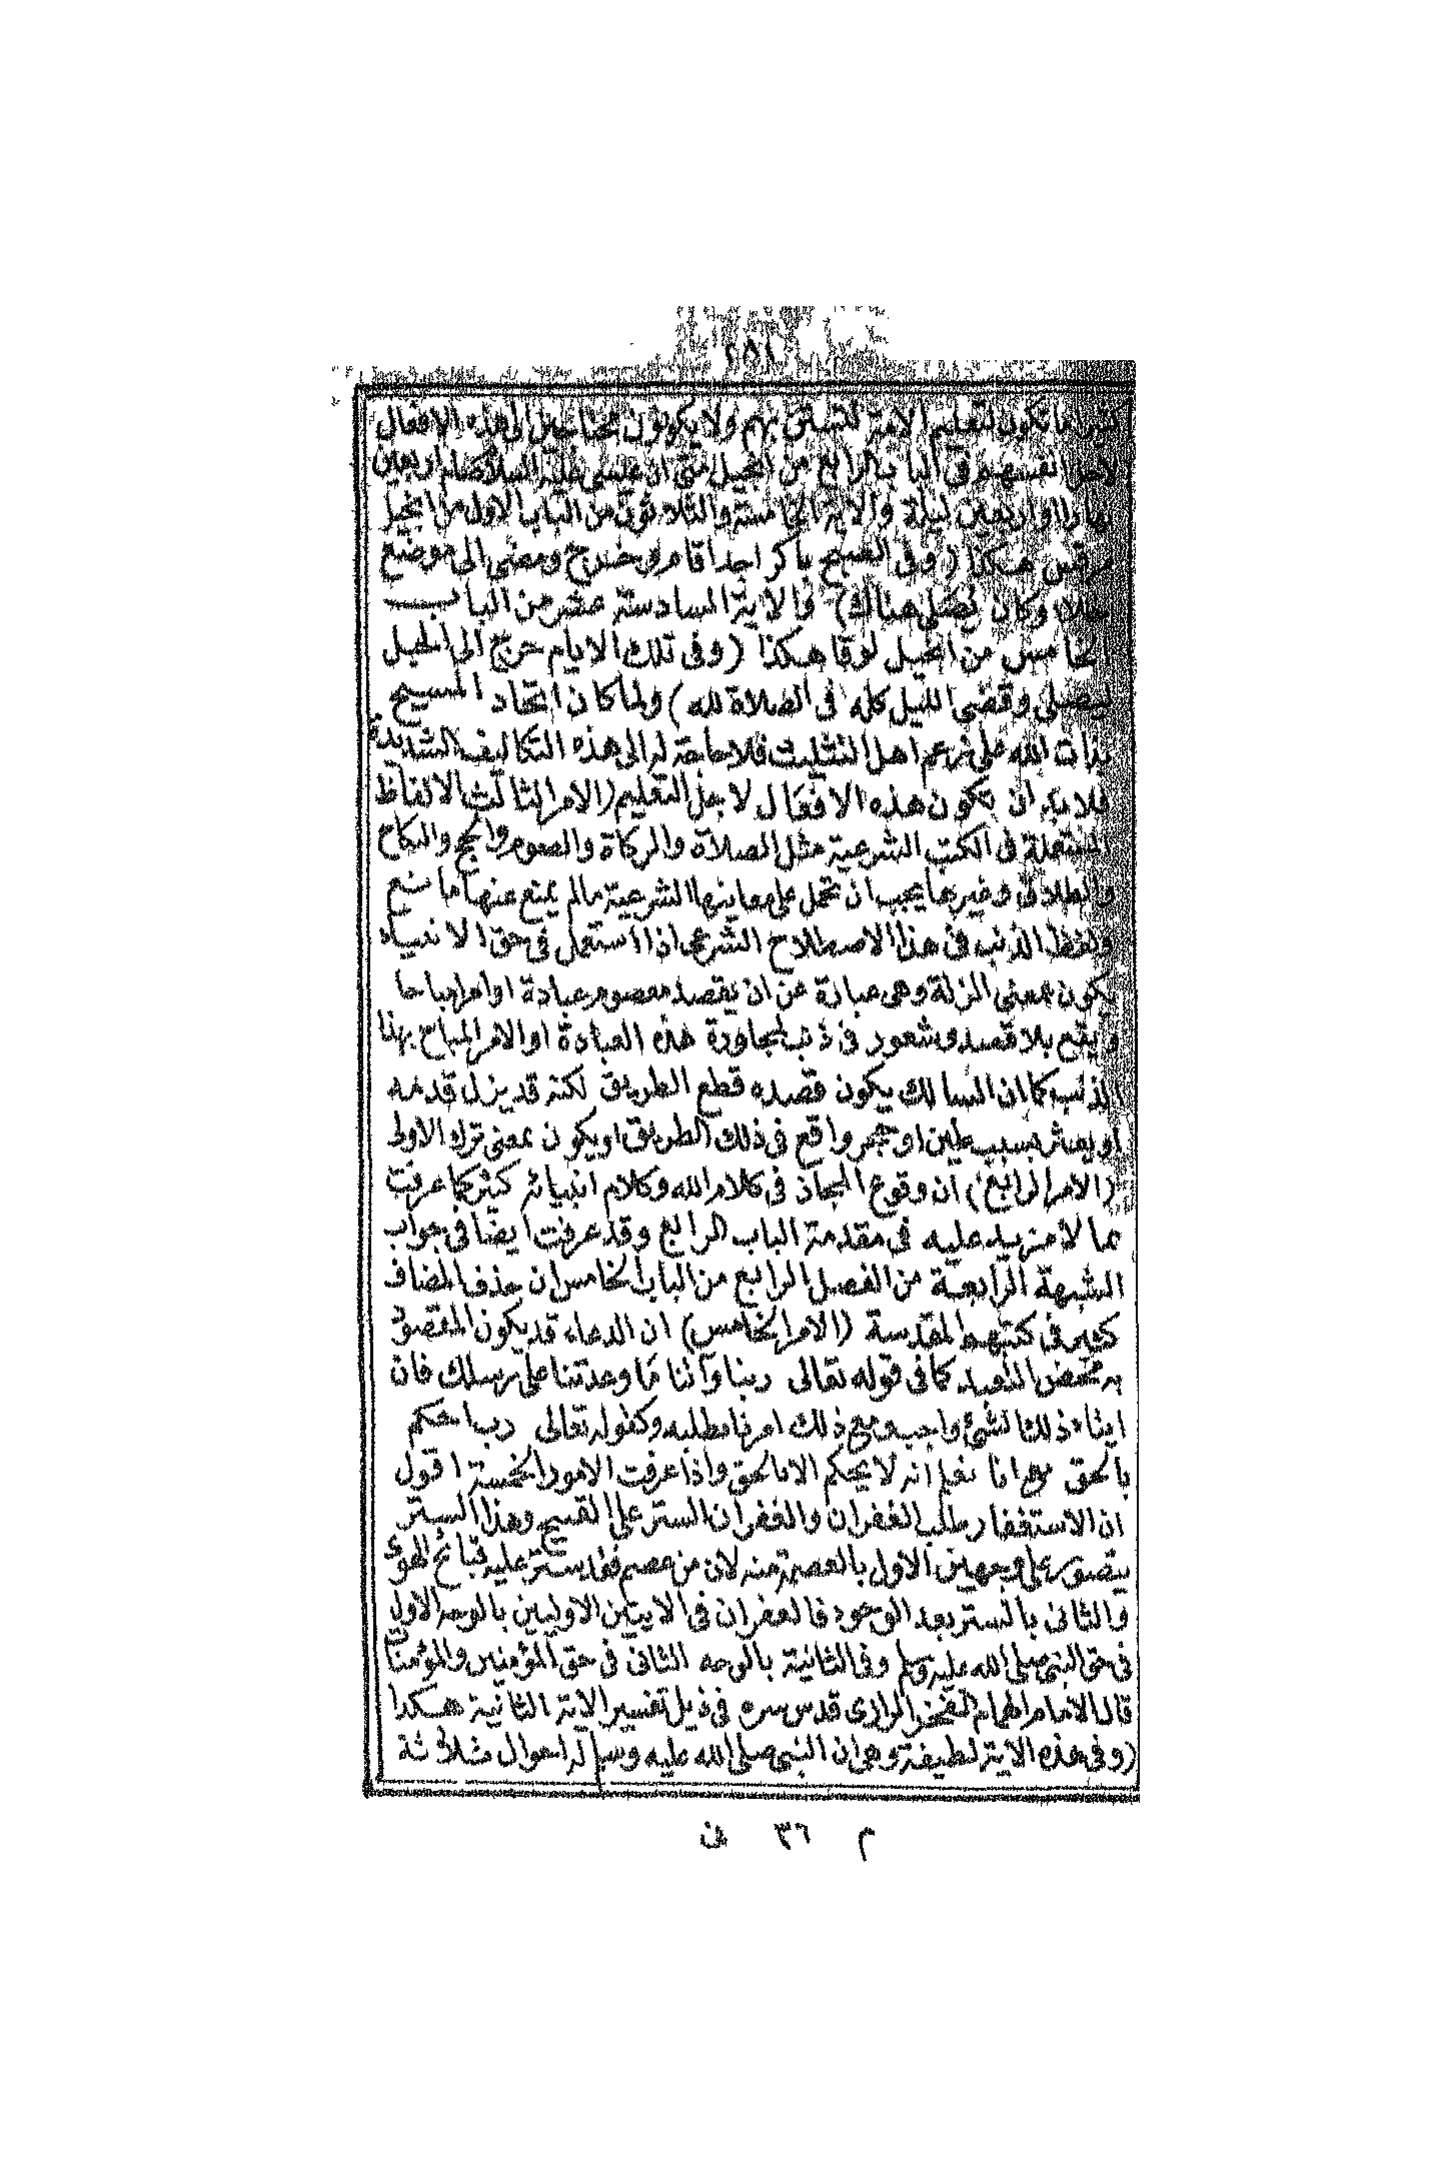 كثيرا ما تكون لتعليم الامة لتستن بهم ولا يكونون محتاجين الى هذه الافعال
لاجل انفسهم في الباب الرابع من انجيل متى ان عيسى عليه السلام صام اربعين
نهارا واربعين ليلة والاية الخامسة والثلاثون من الباب الاول من انجيل
مرقس هكذا (وفي الصبح باكرا جدا قام وخرج ومضى الى موضع
خلاء وكان يصلي هناك) في الاية السادسة عشر من الباب
الخامس من انجيل لوقا هكذا (وفى تلك الايام خرج الى الجبل
ليصلى وقضى الليل كله فى الصلاة لله) ولما كان اتحاد المسيح
بذات الله على زعم اهل التثليث فلا حاجة له الى هذه التكاليف الشديدة
فلا بد ان يكون هذه الافعال لاجل التعليم (الامر الثالث) الالفاظ
المستعملة فى الكتب الشرعية مثل الصلاة والزكاة والصوم والحج والنكاح
والطلاق وغيرها يجب ان تحمل على معاينها الشرعية مالم يمنع عنها مانع
ولفظ الذنب فى هذا الاصطلاح الشرعى اذا استعمل فى حق الانبياء
يكون بمعنى الزلة وهى عبارة عن ان يقصد معصوم عبادة او امرا مباحا
ويقع بلا قصد وشعور فى ذنب لمجاورة هذه العبادة او الامر المباح بهذا
الذنب كما ان السالك يكون قصده قطع الطريق لكنه قد يزل قدمه
او يعثر بسبب طين او حجر واقع فى ذلك الطريق او يكون بمعنى ترك الاولى
(الامر الرابع) ان وقوع المجاز فى كلام الله وكلام انبيائه كثير كما عرفت
بما لا مزيد عليه فى مقدمة الباب الرابع وقد عرفت ايضا فى جواب
الشبهة الرابعة من الفصل الرابع من الباب الخامس ان حذف المضاف
كثير فى كتبهم المقدسة (الامر الخامس) ان الدعاء قد يكون المقصود
به محض التعبد كما فى قوله تعالى ربنا وآتنا ما وعدتنا على رسلك فان
ايتاء ذلك الشئ واجب ومع ذلك امرنا بطلبه وكقوله تعالى رب احكم
بالحق مع انا نعلم انه لا يحكم الا بالحق واذا عرفت الامور الخمسة اقول
ان الاستغفار طلب الغفران والغفران الستر على القبيح وهذا الستر
يتصور على وجهين الاول بالعصمة منه لان من عصم فقد ستر عليه قبائح الهوى
والثانى بالستر بعد الوجود فالغفران فى الايتين الاوليين بالوجه الاول
فى حق النبى صلى الله عليه وسلم وفى الثانية بالوجه الثانى فى حق المؤمنين والمؤمنات
قال الامام الهمام الفخر الرازى قدس سره فى ذيل تفسير الاية الثانية هكذا
(وفى هذه الاية لطيفة وهى ان النبى صلى الله عليه وسلم له احوال ثلاثة
م ٣٦ نى